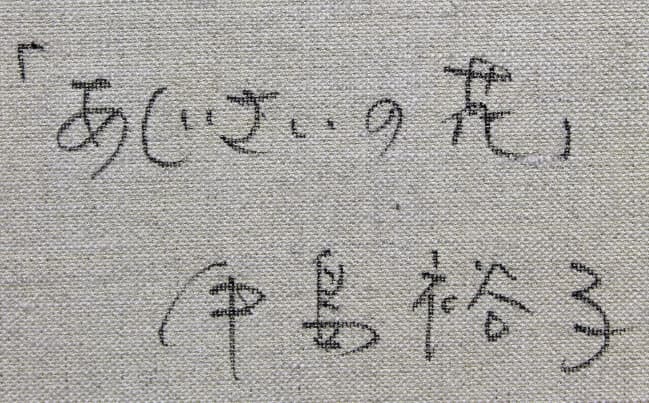 「あじさいの花」
中島裕子